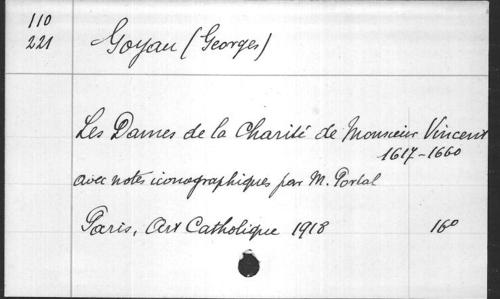 110
221
Goyau (Georges)
Les Dames de la Charité de Monsieur Vincent
1617-1660
avec notes iconographiques par M. Portal
Paris, Art Catholique 1918 16°